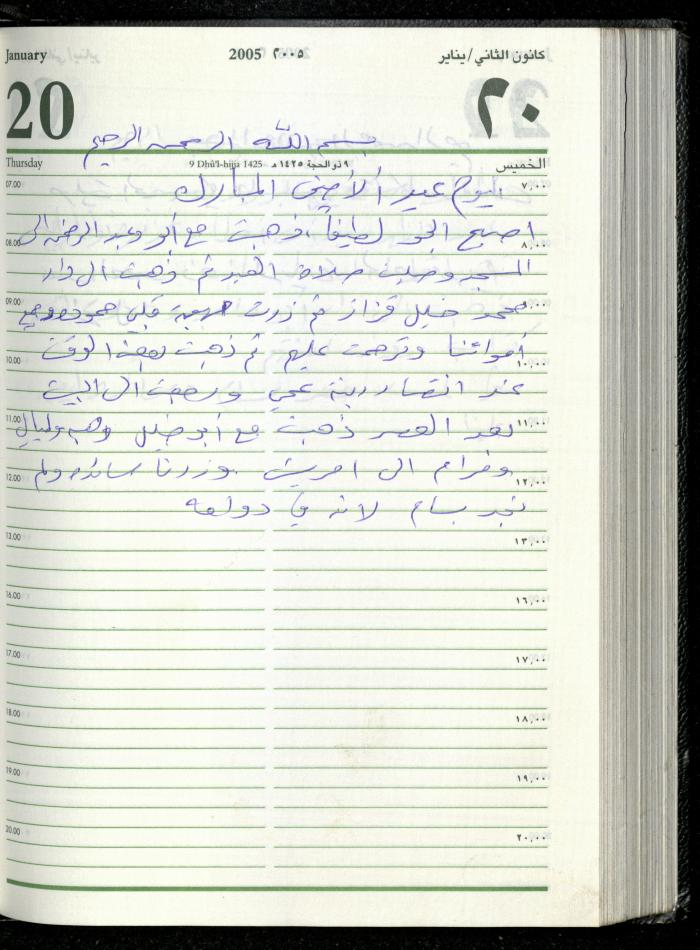 January 2005 ٢٠٠٥ كانون الثاني/يناير
20 ٢٠
بسم الله الرحمن الرحيم
Thursday 9 Dhū'l-hijja 1425 ٩ ذو الحجة ١٤٢٥ هـ الخميس
07.00 اليوم عيد الأضحى المبارك ٧,٠٠
اصبح الجو لطيفاً، ذهبت مع أبو وعبد الرحمن الى
08.00 ٨,٠٠
المسجد وصليت صلاة العيد ثم ذهبت الى دار
09.00 محمد خليل قزاز ثم زرت ٩,٠٠
أمواتنا وترحمت عليهم ثم ذهبت بعض الوقت
10.00 ١٠,٠٠
عند انتصار ابنة عمي ورجعت الى البيت
11.00 بعد العصر ذهبت مع أبو خليل ١١,٠٠
ومرام الى وزرنا ولم
12.00 ١٢,٠٠
نجد بسام لانه في
13.00 ١٣,٠٠
16.00 ١٦,٠٠
17.00 ١٧,٠٠
18.00 ١٨,٠٠
19.00 ١٩,٠٠
20.00 ٢٠,٠٠